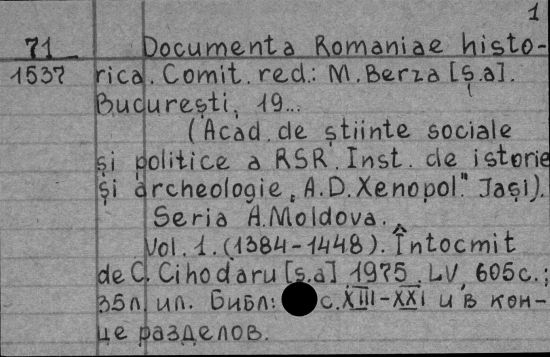 1
71 Documenta Romaniae histo-
1537 rica. Comit. red.: M. Berza [ș.a].
București, 19...
(Acad. de știinte sociale
și politice a RSR. Inst. de istorie
și archeologie „A.D. Xenopol." Jași).
Seria A. Moldova.
Vol. 1. (1384-1448). Întocmit
de C. Cihodaru [ș.a] 1975. LV, 605с.;
35л. ил. Библ: с. XIII-XXI и в кон-
це разделов.